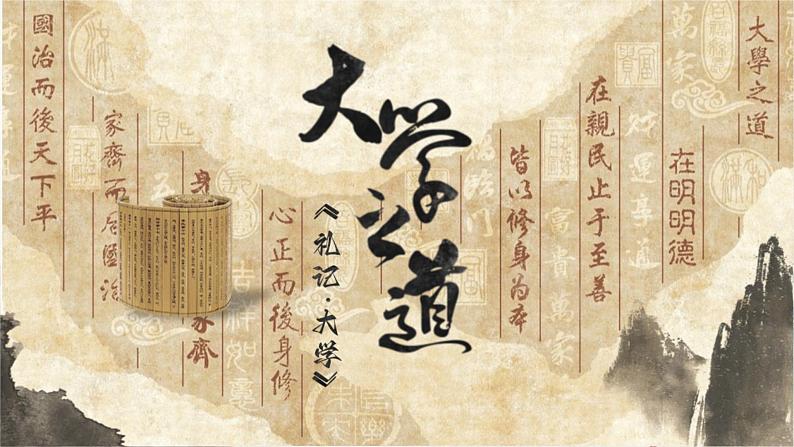 大学之道
《礼记·大学》
大學之道
在明明德
在親民止于至善
皆以修身为本
心正而後身修
身
家齊
家齊而后國治
國治而後天下平
萬家
財運亨通
富貴萬家
臨門
吉祥如意